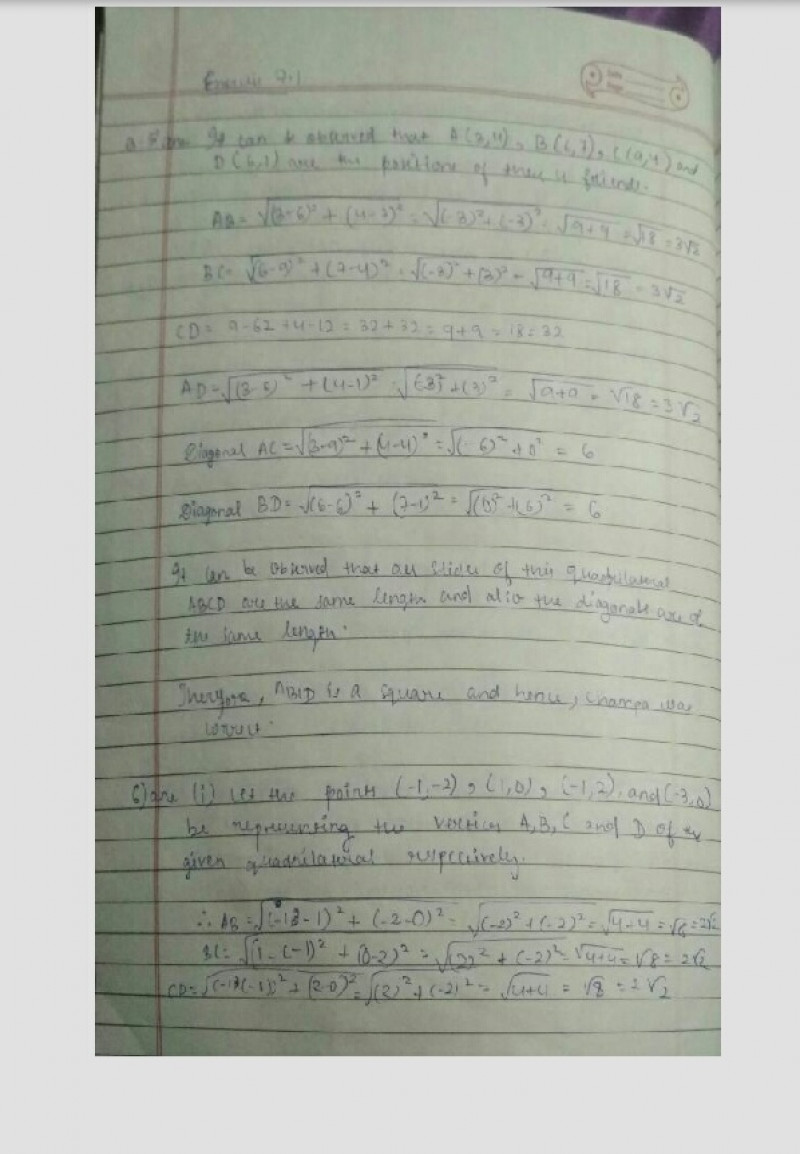 Exercise 7.1
It can be observed that A(3,4), B(6,7), C(9,4) and
D(6,1) are the positions of these 4 friends.
AB = √(3-6)² + (4-7)² = √(-3)² + (-3)² = √9+9 = √18 = 3√2
BC = √(6-9)² + (7-4)² = √(-3)² + (3)² = √9+9 = √18 = 3√2
CD = 9-62 + 4-12 = 32 + 32 = 9+9 = 18 = 32
AD = √(3-6)² + (4-1)² = √(-3)² + (3)² = √9+9 = √18 = 3√2
Diagonal AC = √(3-9)² + (4-4)² = √(-6)² + 0² = 6
Diagonal BD = √(6-6)² + (7-1)² = √(0)² + (6)² = 6
It can be observed that all sides of this quadrilateral
ABCD are the same length and also the diagonals are of
the same length.
Therefore, ABCD is a square and hence, Champa was
correct.
6) (i) Let the points (-1,-2), (1,0), (-1,2), and (-3,0)
be representing the vertices A, B, C and D of the
given quadrilateral respectively.
∴ AB = √(-1-1)² + (-2-0)² = √(-2)² + (-2)² = √4+4 = √8 = 2√2
BC = √(1-(-1)² + (0-2)² = √(2)² + (-2)² = √4+4 = √8 = 2√2
= √(2)² + (-2)² = √4+4 = √8 = 2√2